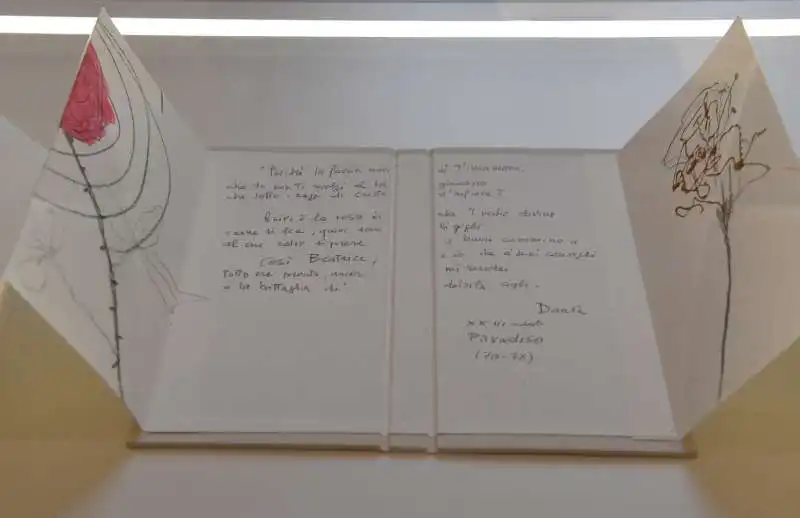 "Perché la faccia mia sì t'innamora
che tu non ti rivolgi al bel giardino
che sotto i raggi di Cristo s'infiora?
Quivi è la rosa in che 'l verbo divino
carne si fece, quivi son li gigli
al cui odor si prese il buon cammino"
Così Beatrice, e io che a' suoi consigli
tutto era pronto, ancora mi rendei
a la battaglia de' debili cigli.
Dante
XXIII
Paradiso
(70-78)